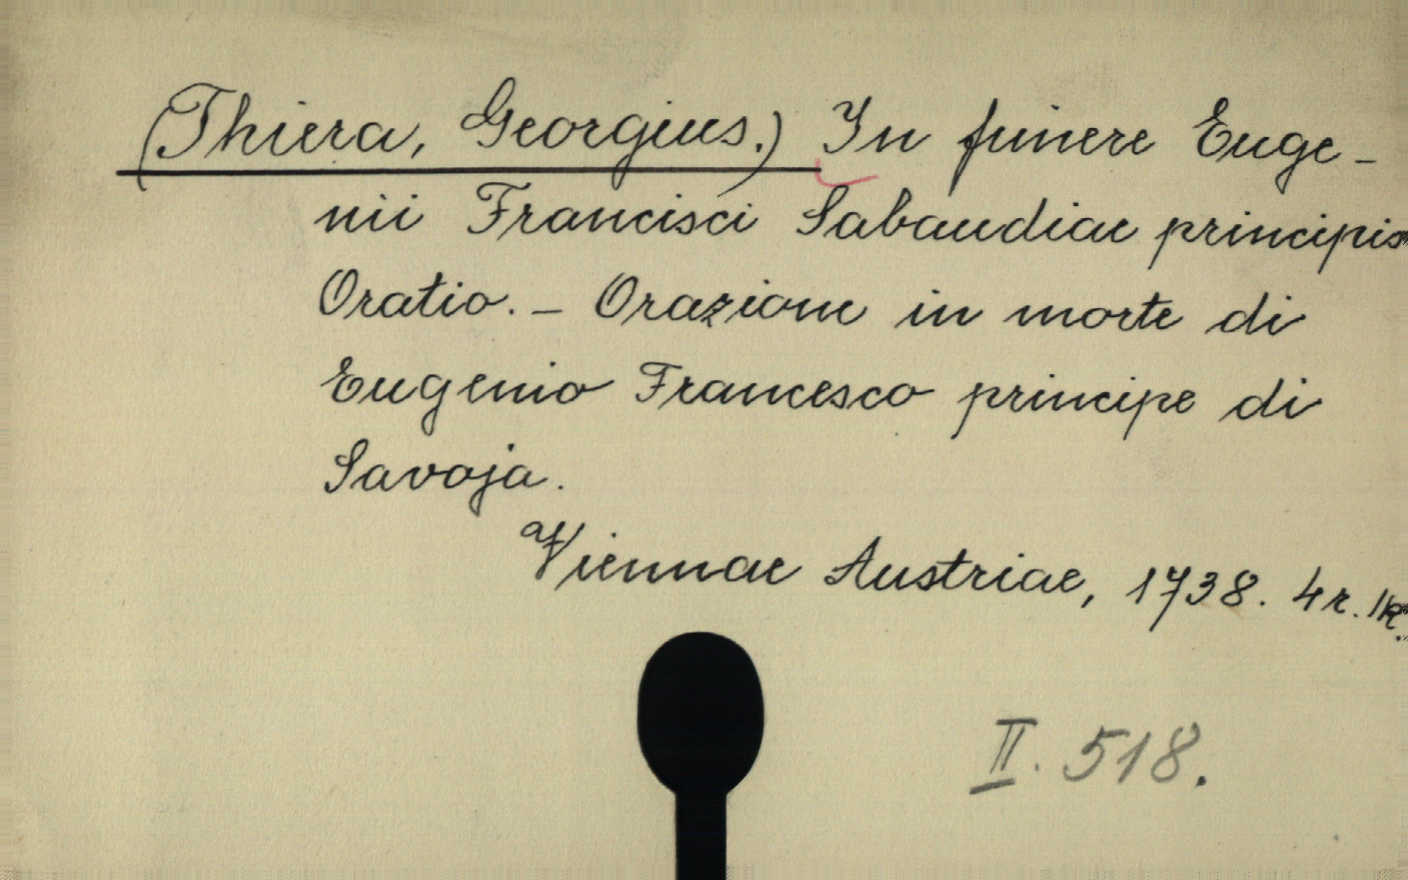 (Thiera, Georgius.) In funere Euge-
nii Francisci Sabaudiae principis
Oratio. - Orazione in morte di
Eugenio Francesco principe di
Savoja.
Viennae Austriae, 1738. 4r.
II. 518.